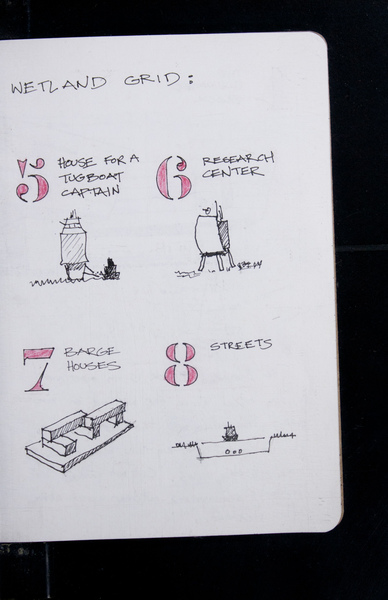 WETLAND GRID:
5 HOUSE FOR A
TUGBOAT
CAPTAIN
6 RESEARCH
CENTER
7 BARGE
HOUSES
8 STREETS